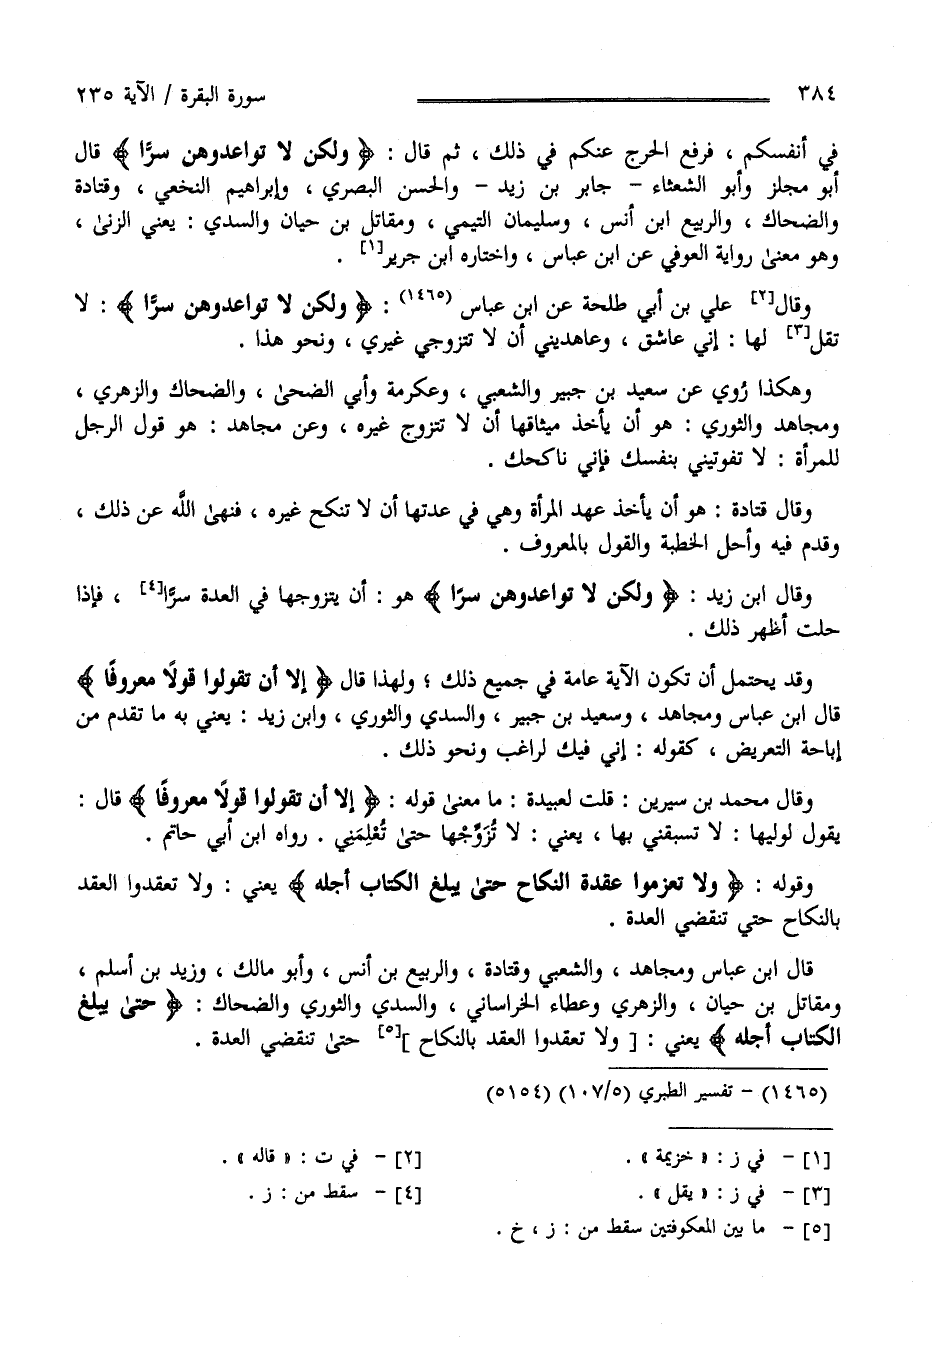 ٣٨٤ سورة البقرة / الآية ٢٣٥
في أنفسكم ، فرفع الحرج عنكم في ذلك ، ثم قال : ﴿ ولكن لا تواعدوهن سرًّا ﴾ قال
أبو مجلز وأبو الشعثاء - جابر بن زيد - والحسن البصري ، وإبراهيم النخعي ، وقتادة
والضحاك ، والربيع ابن أنس ، وسليمان التيمي ، ومقاتل بن حيان والسدي : يعني الزنىٰ ،
وهو معنىٰ رواية العوفي عن ابن عباس ، واختاره ابن جرير[١] .
وقال[٢] علي بن أبي طلحة عن ابن عباس (١٤٦٥) : ﴿ ولكن لا تواعدوهن سرًّا ﴾ : لا
تقل[٣] لها : إني عاشق ، وعاهديني أن لا تتزوجي غيري ، ونحو هذا .
وهكذا رُوي عن سعيد بن جبير والشعبي ، وعكرمة وأبي الضحىٰ ، والضحاك والزهري ،
ومجاهد والثوري : هو أن يأخذ ميثاقها أن لا تتزوج غيره ، وعن مجاهد : هو قول الرجل
للمرأة : لا تفوتيني بنفسك فإني ناكحك .
وقال قتادة : هو أن يأخذ عهد المرأة وهي في عدتها أن لا تنكح غيره ، فنهىٰ اللَّه عن ذلك ،
وقدم فيه وأحل الخطبة والقول بالمعروف .
وقال ابن زيد : ﴿ ولكن لا تواعدوهن سرًا ﴾ هو : أن يتزوجها في العدة سرًّا[٤] ، فإذا
حلت أظهر ذلك .
وقد يحتمل أن تكون الآية عامة في جميع ذلك ؛ ولهذا قال ﴿ إلا أن تقولوا قولًا معروفًا ﴾
قال ابن عباس ومجاهد ، وسعيد بن جبير ، والسدي والثوري ، وابن زيد : يعني به ما تقدم من
إباحة التعريض ، كقوله : إني فيك لراغب ونحو ذلك .
وقال محمد بن سيرين : قلت لعبيدة : ما معنىٰ قوله : ﴿ إلا أن تقولوا قولًا معروفًا ﴾ قال :
يقول لوليها : لا تسبقني بها ، يعني : لا تُزَوِّجْها حتىٰ تُعْلِمَنِي . رواه ابن أبي حاتم .
وقوله : ﴿ ولا تعزموا عقدة النكاح حتىٰ يبلغ الكتاب أجله ﴾ يعني : ولا تعقدوا العقد
بالنكاح حتي تنقضي العدة .
قال ابن عباس ومجاهد ، والشعبي وقتادة ، والربيع بن أنس ، وأبو مالك ، وزيد بن أسلم ،
ومقاتل بن حيان ، والزهري وعطاء الخراساني ، والسدي والثوري والضحاك : ﴿ حتىٰ يبلغ
الكتاب أجله ﴾ يعني : [ ولا تعقدوا العقد بالنكاح ][٥] حتىٰ تنقضي العدة .
(١٤٦٥) - تفسير الطبري (١٠٧/٥) (٥١٥٤)
[١] - في ز : « خزيمة » . [٢] - في ت : « قاله » .
[٣] - في ز : « يقل » . [٤] - سقط من : ز .
[٥] - ما بين المعكوفتين سقط من : ز ، خ .